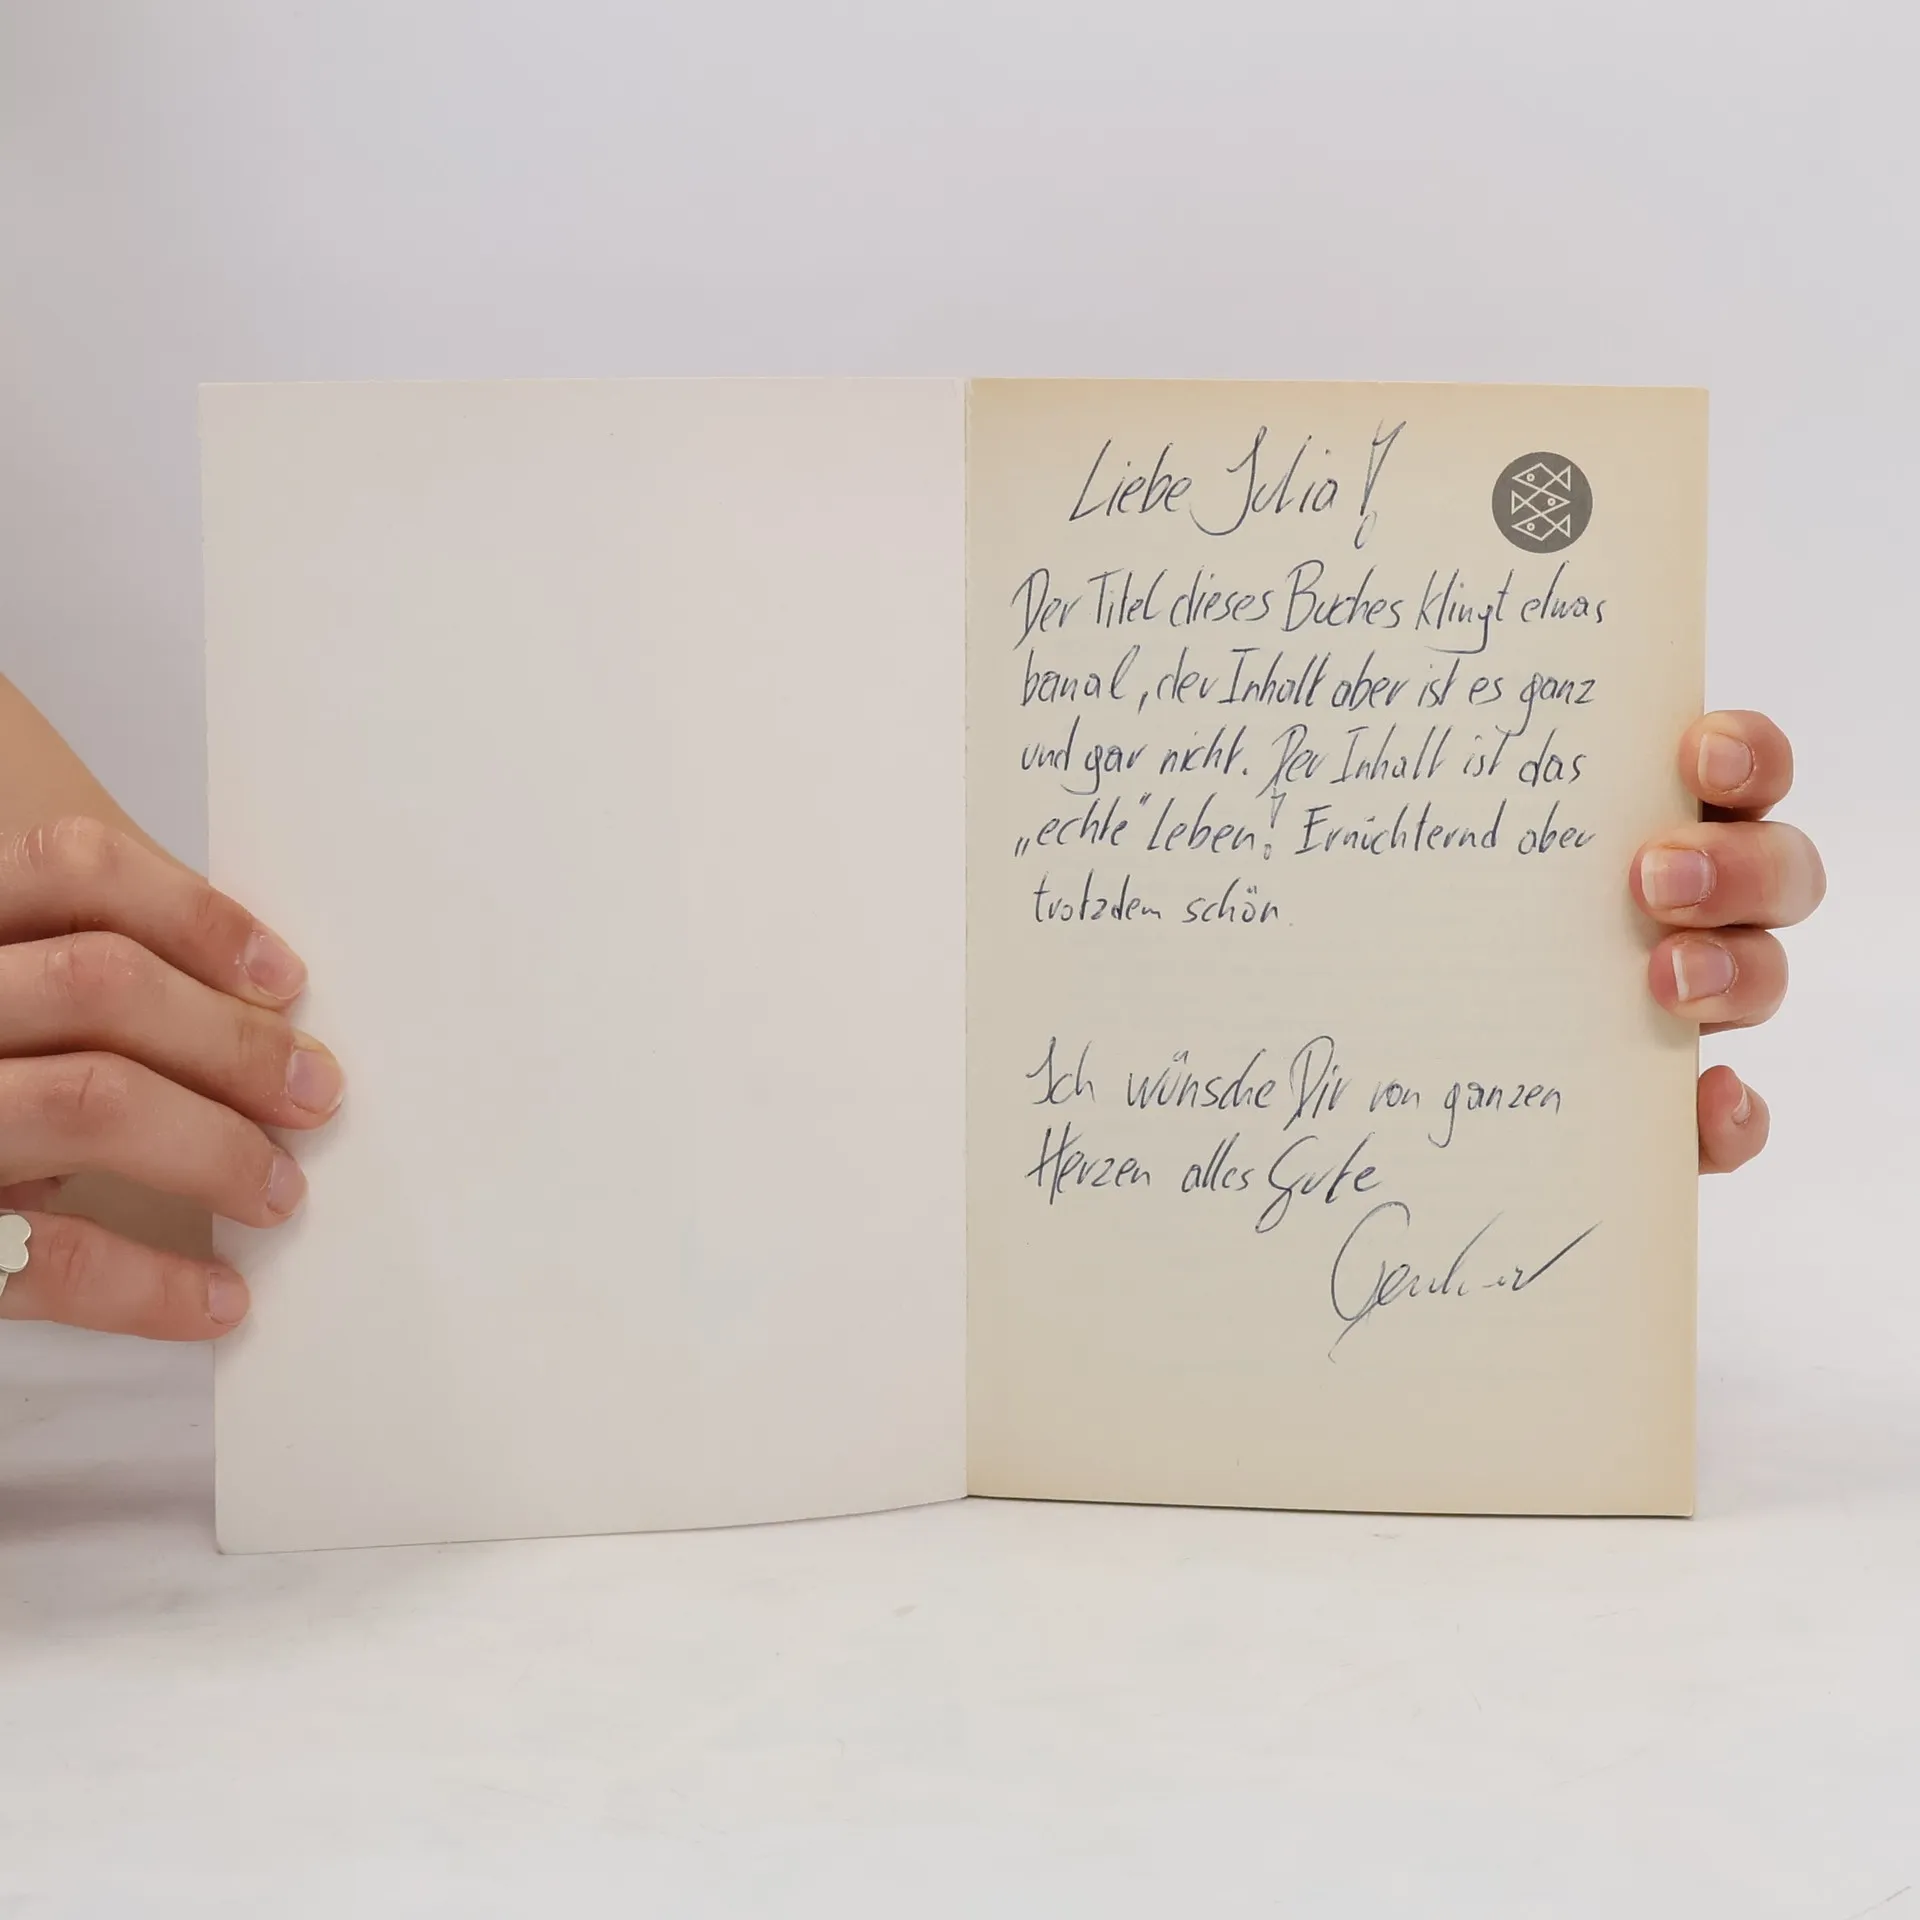 Liebe Julia!
Der Titel dieses Buches klingt etwas
banal, der Inhalt aber ist es ganz
und gar nicht. Der Inhalt ist das
„echte" Leben! Ernüchternd aber
trotzdem schön.
Ich wünsche Dir von ganzen
Herzen alles Gute